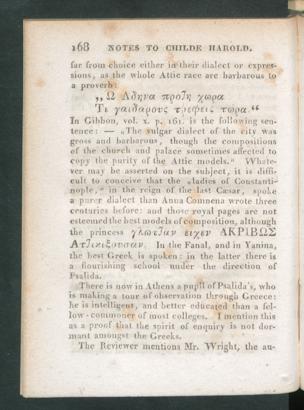 168 NOTES TO CHILDE HAROLD.
far from choice either in their dialect or expres-
sions, as the whole Attic race are barbarous to
a proverb:
„Ω Αθηνα προ7η χωρα
Τι γαιδαρους τρεφεις τωρα.“
In Gibbon, vol. x. p. 161. is the following sen-
tence: — „The vulgar dialect of the city was
gross and barbarous, though the compositions
of the church and palace sometimes affected to
copy the purity of the Attic models.“ Whate-
ver may be asserted on the subject, it is diffi-
cult to conceive that the „ladies of Constanti-
nople,“ in the reign of the last Cæsar, spoke
a purer dialect than Anna Comnena wrote three
centuries before: and those royal pages are not
esteemed the best models of composition, although
the princess γλωτ7αν ειχεν ΑΚΡΙΒΩΣ
Ατ7ικιζουσαν. In the Fanal, and in Yanina,
the best Greek is spoken: in the latter there is
a flourishing school under the direction of
Psalida.
There is now in Athens a pupil of Psalida's, who
is making a tour of observation through Greece:
he is intelligent, and better educated than a fel-
low-commoner of most colleges. I mention this
as a proof that the spirit of enquiry is not dor-
mant amongst the Greeks.
The Reviewer mentions Mr. Wright, the au-